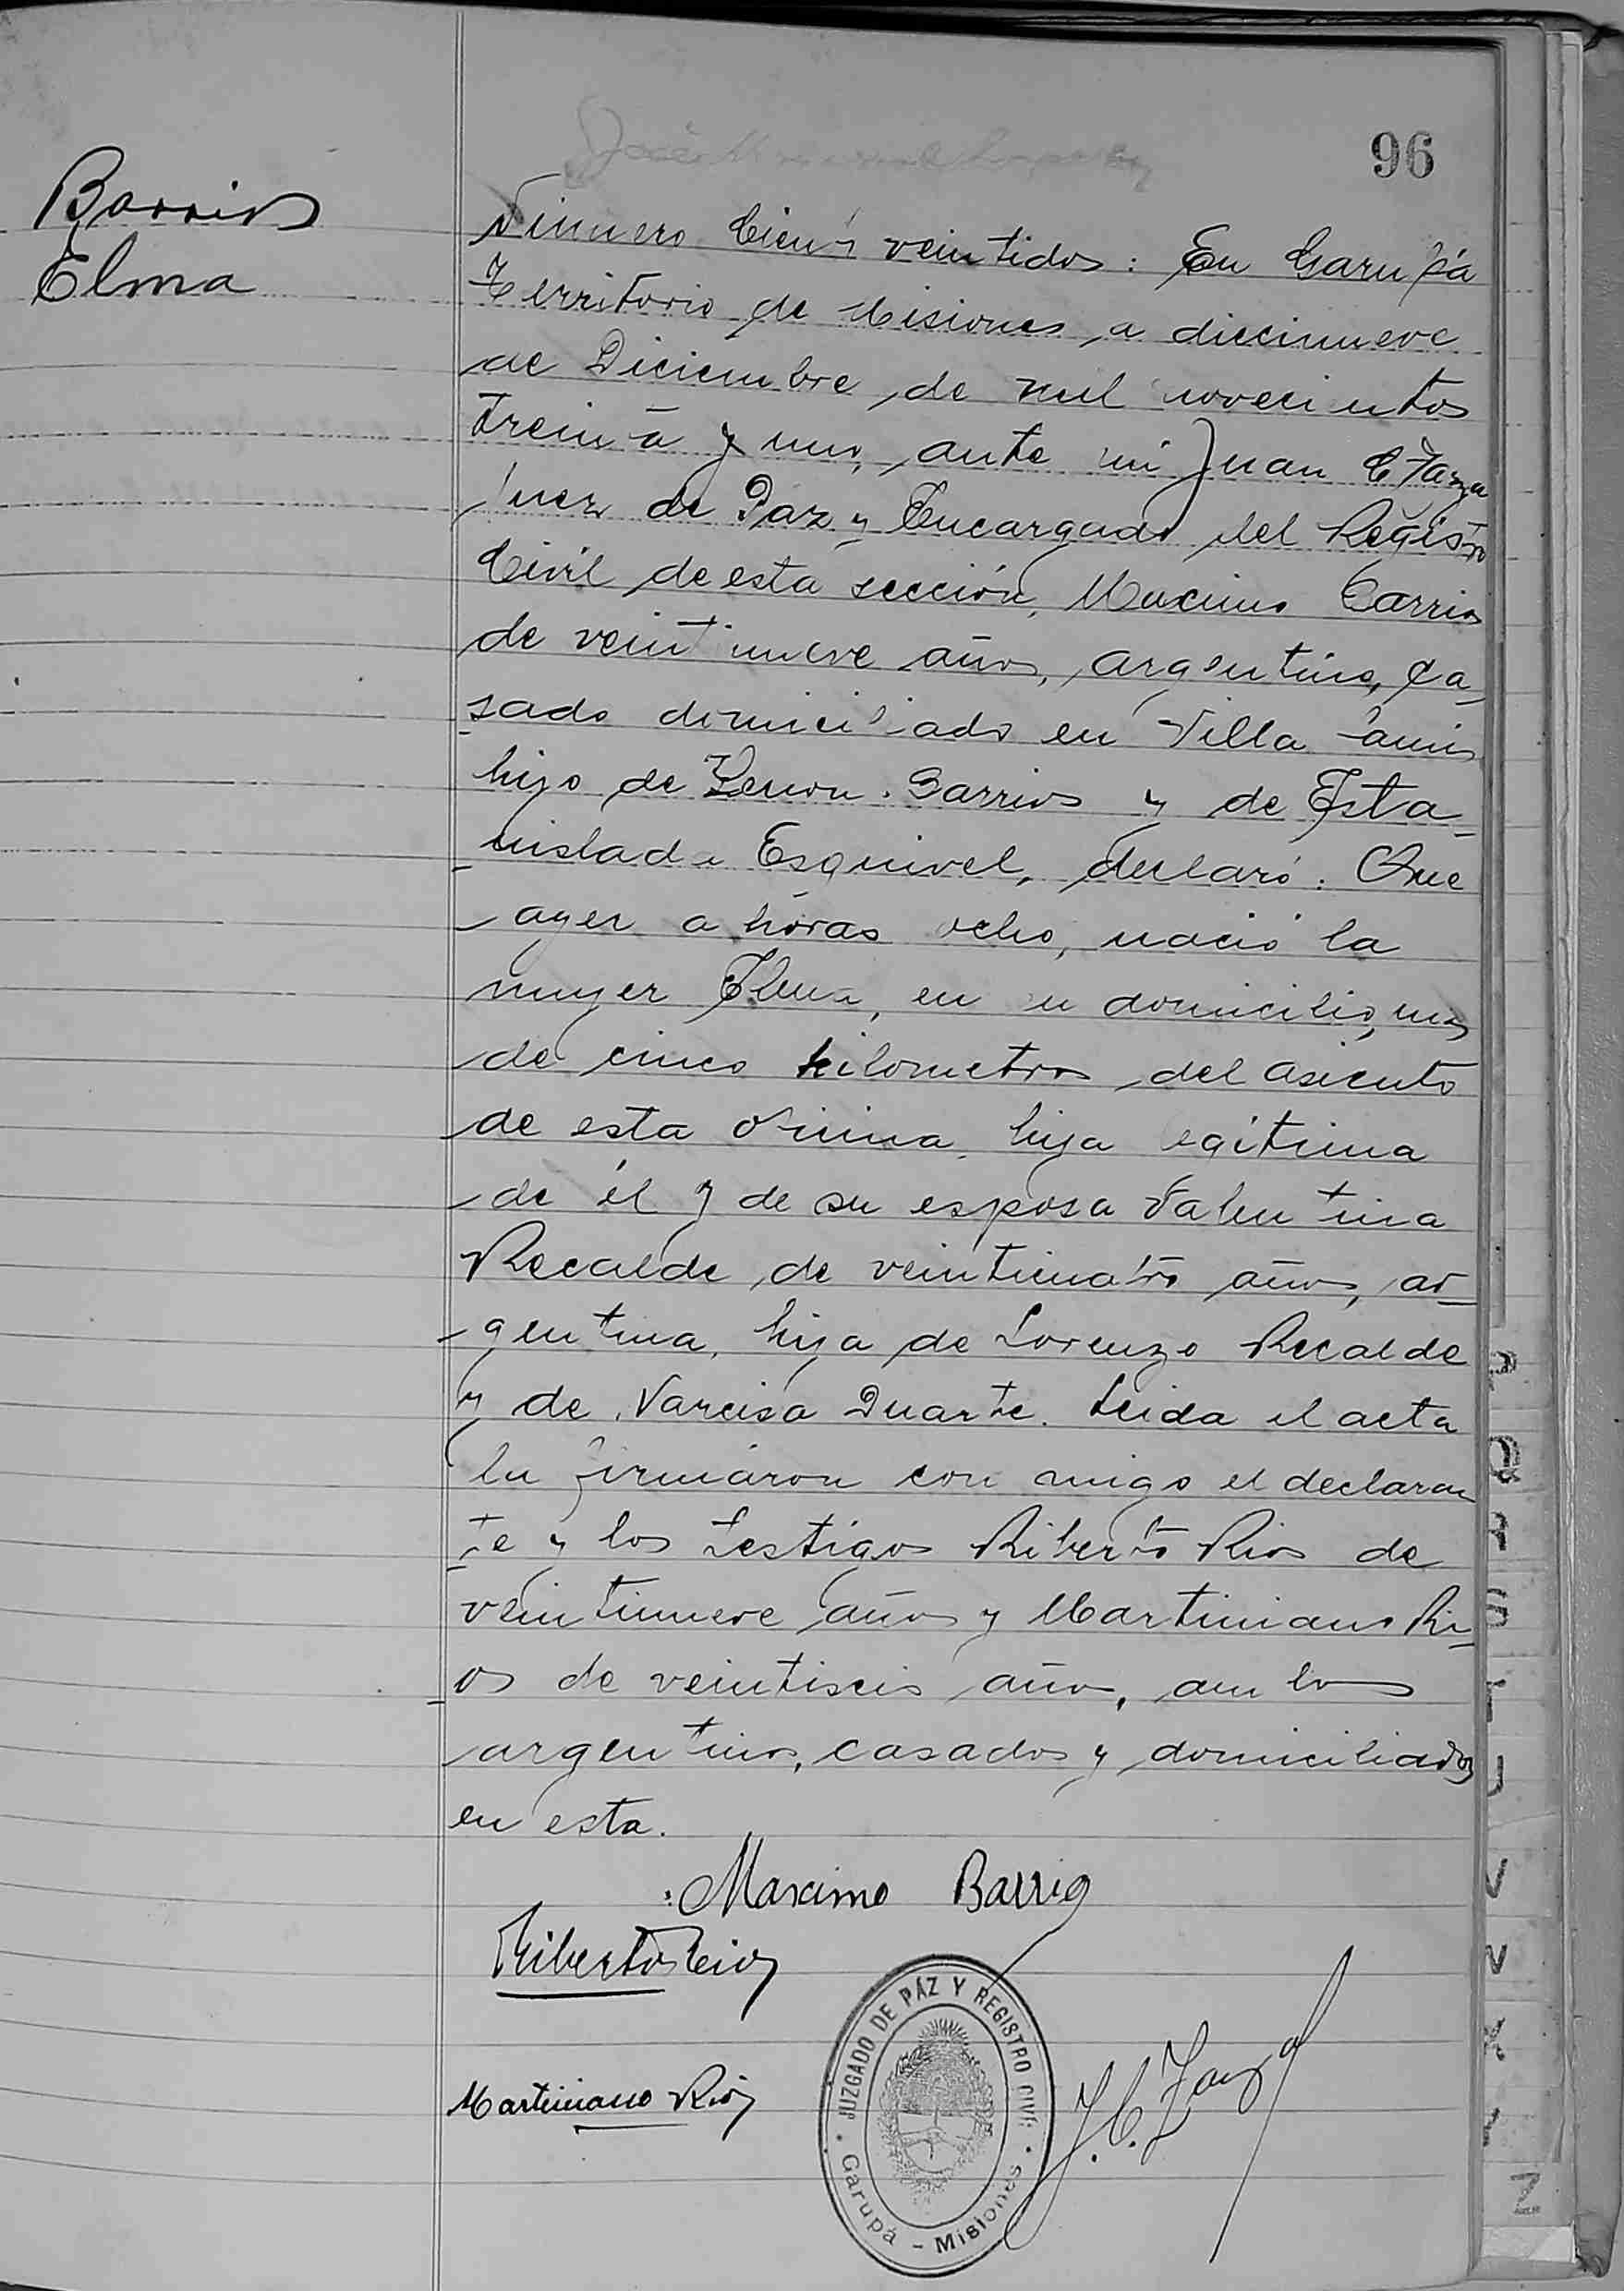 96
Barrios
Elma
Número Cien y veintidos: En Garupá
Territorio de Misiones, a diecinueve
de Diciembre, de mil novecientos
treinta y uno, ante mi Juan C Zarza
Juez de Paz y Encargado del Registro
Civil de esta sección, Maximo Barrios
de veintinueve años, argentino, ca-
sado domiciliado en Villa
hijo de Zenon Barrios y de Esta-
nislada Esquivel, declaró: Que
ayer a horas ocho, nació la
mujer Elma, en su domicilio, mas
de cinco kilometros, del asiento
de esta oficina, hija legitima
de él y de su esposa Valentina
Recalde, de veinticuatro años, ar-
gentina, hija de Lorenzo Recalde
y de Narcisa Duarte. Leida el acta
la firmaron con migo el declaran
te y los testigos Riberto Rios de
veintinueve años y Martiniano Ri-
os de veintiseis años, ambos
argentinos, casados y domiciliados
en esta.
Maximo Barrio
Riberto Rios
Martiniano Rios
J. C. Zarza
JUZGADO DE PAZ Y REGISTRO CIVIL
Garupá - Misiones
P
Q
R
S
T
U
V
V
X
Y
Z